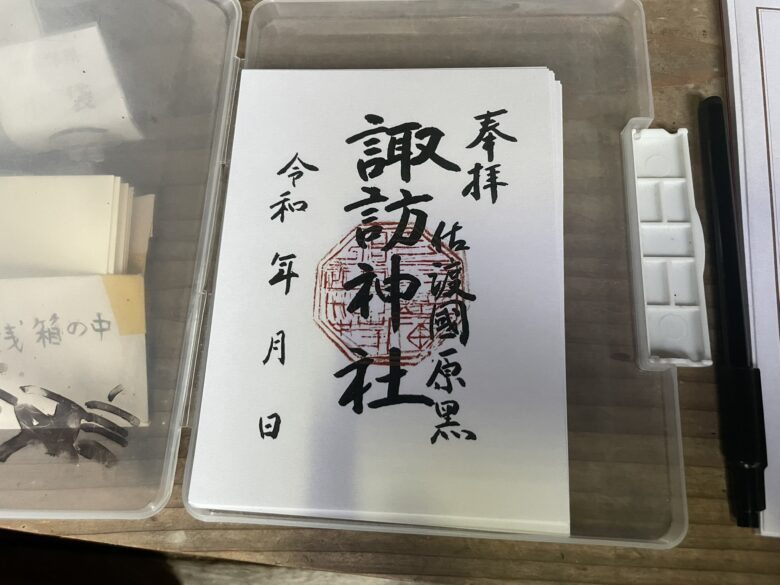 奉拝
佐渡國原黒
諏訪神社
令和 年 月 日
銭箱の中